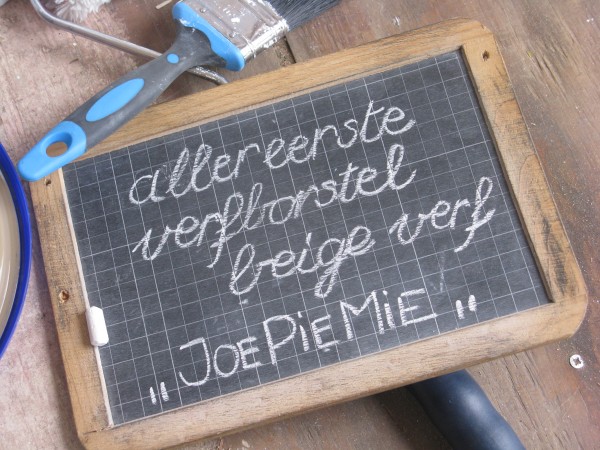 allereerste
verfborstel
beige verf
"JOEPIEMIE"